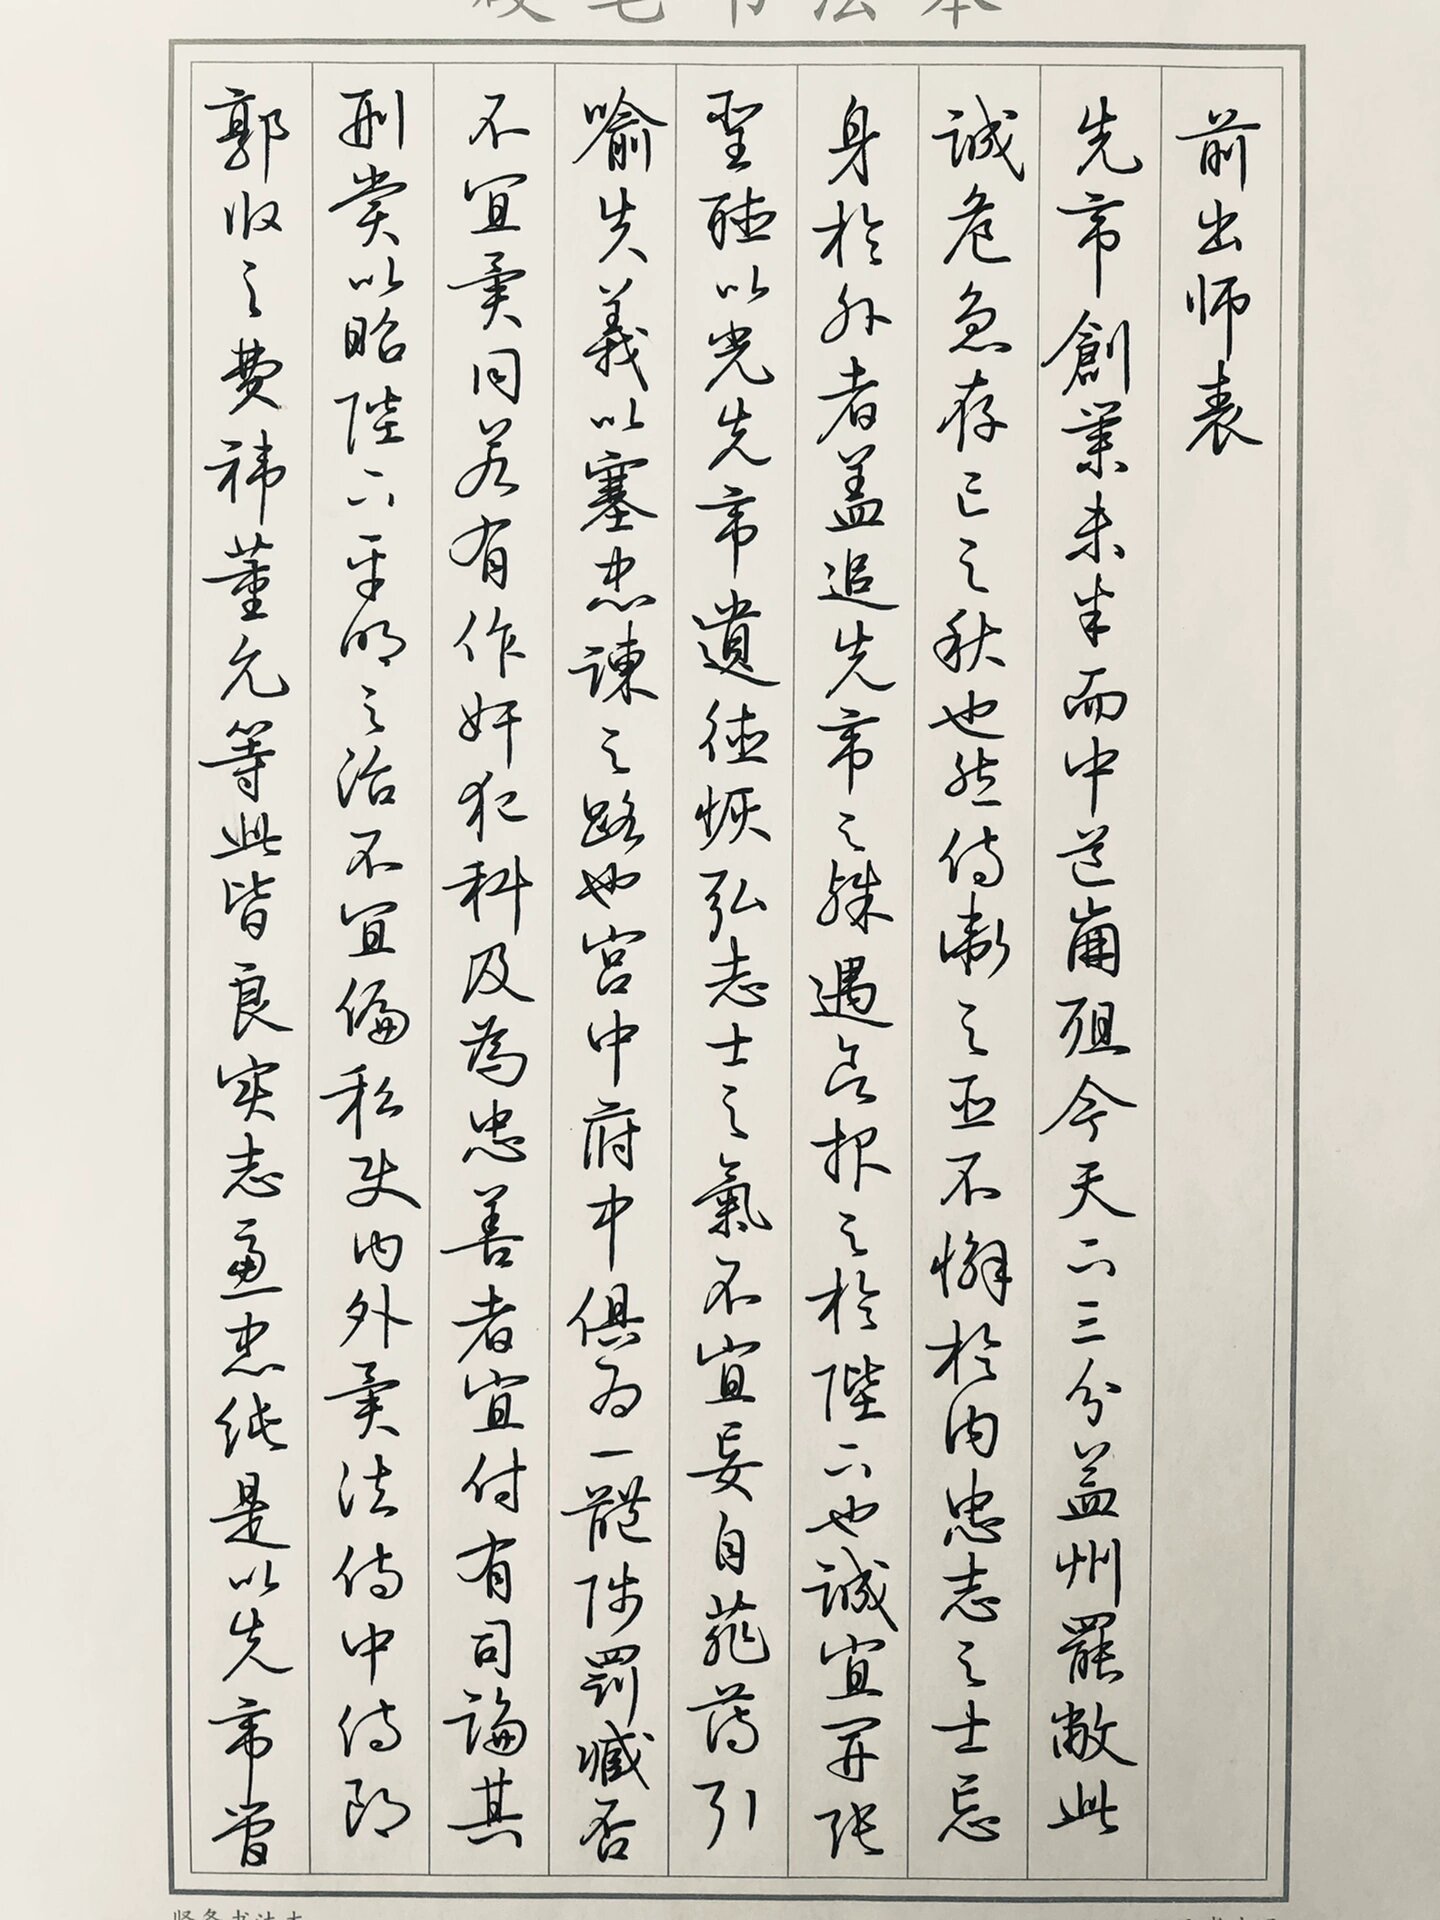 硬笔书法本
前出师表
先帝創業未半而中道崩殂今天下三分益州罷敝此
誠危急存亡之秋也然侍衛之臣不懈於内忠志之士忘
身於外者盖追先帝之殊遇欲报之於陛下也誠宜开张
聖聴以光先帝遺德恢弘志士之氣不宜妄自菲薄引
喻失義以塞忠諫之路也宫中府中俱为一體陟罰臧否
不宜異同若有作奸犯科及為忠善者宜付有司論其
刑赏以昭陛下平明之治不宜偏私使内外異法侍中侍郎
郭攸之費禕董允等此皆良实志慮忠纯是以先帝曾